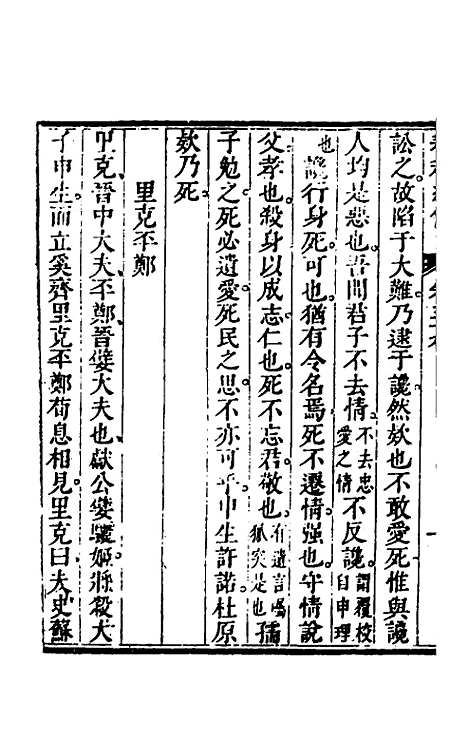 訟之故陷于大難乃逮于讒然欵也不敢愛死惟與讒
人均是惡也吾聞君子不去情不去忠愛之情不反讒謂覆校自申理
也讒行身死可也猶有令名焉死不遷情强也守情說
父孝也殺身以成志仁也死不忘君敬也有遺言囑狐突是也孺
子勉之死必遺愛死民之思不亦可乎申生許諾杜原
欵乃死
里克丕鄭
里克晉中大夫丕鄭晉嬖大夫也獻公嬖驪姬將殺大
子申生而立奚齊里克丕鄭荀息相見里克曰夫史蘇